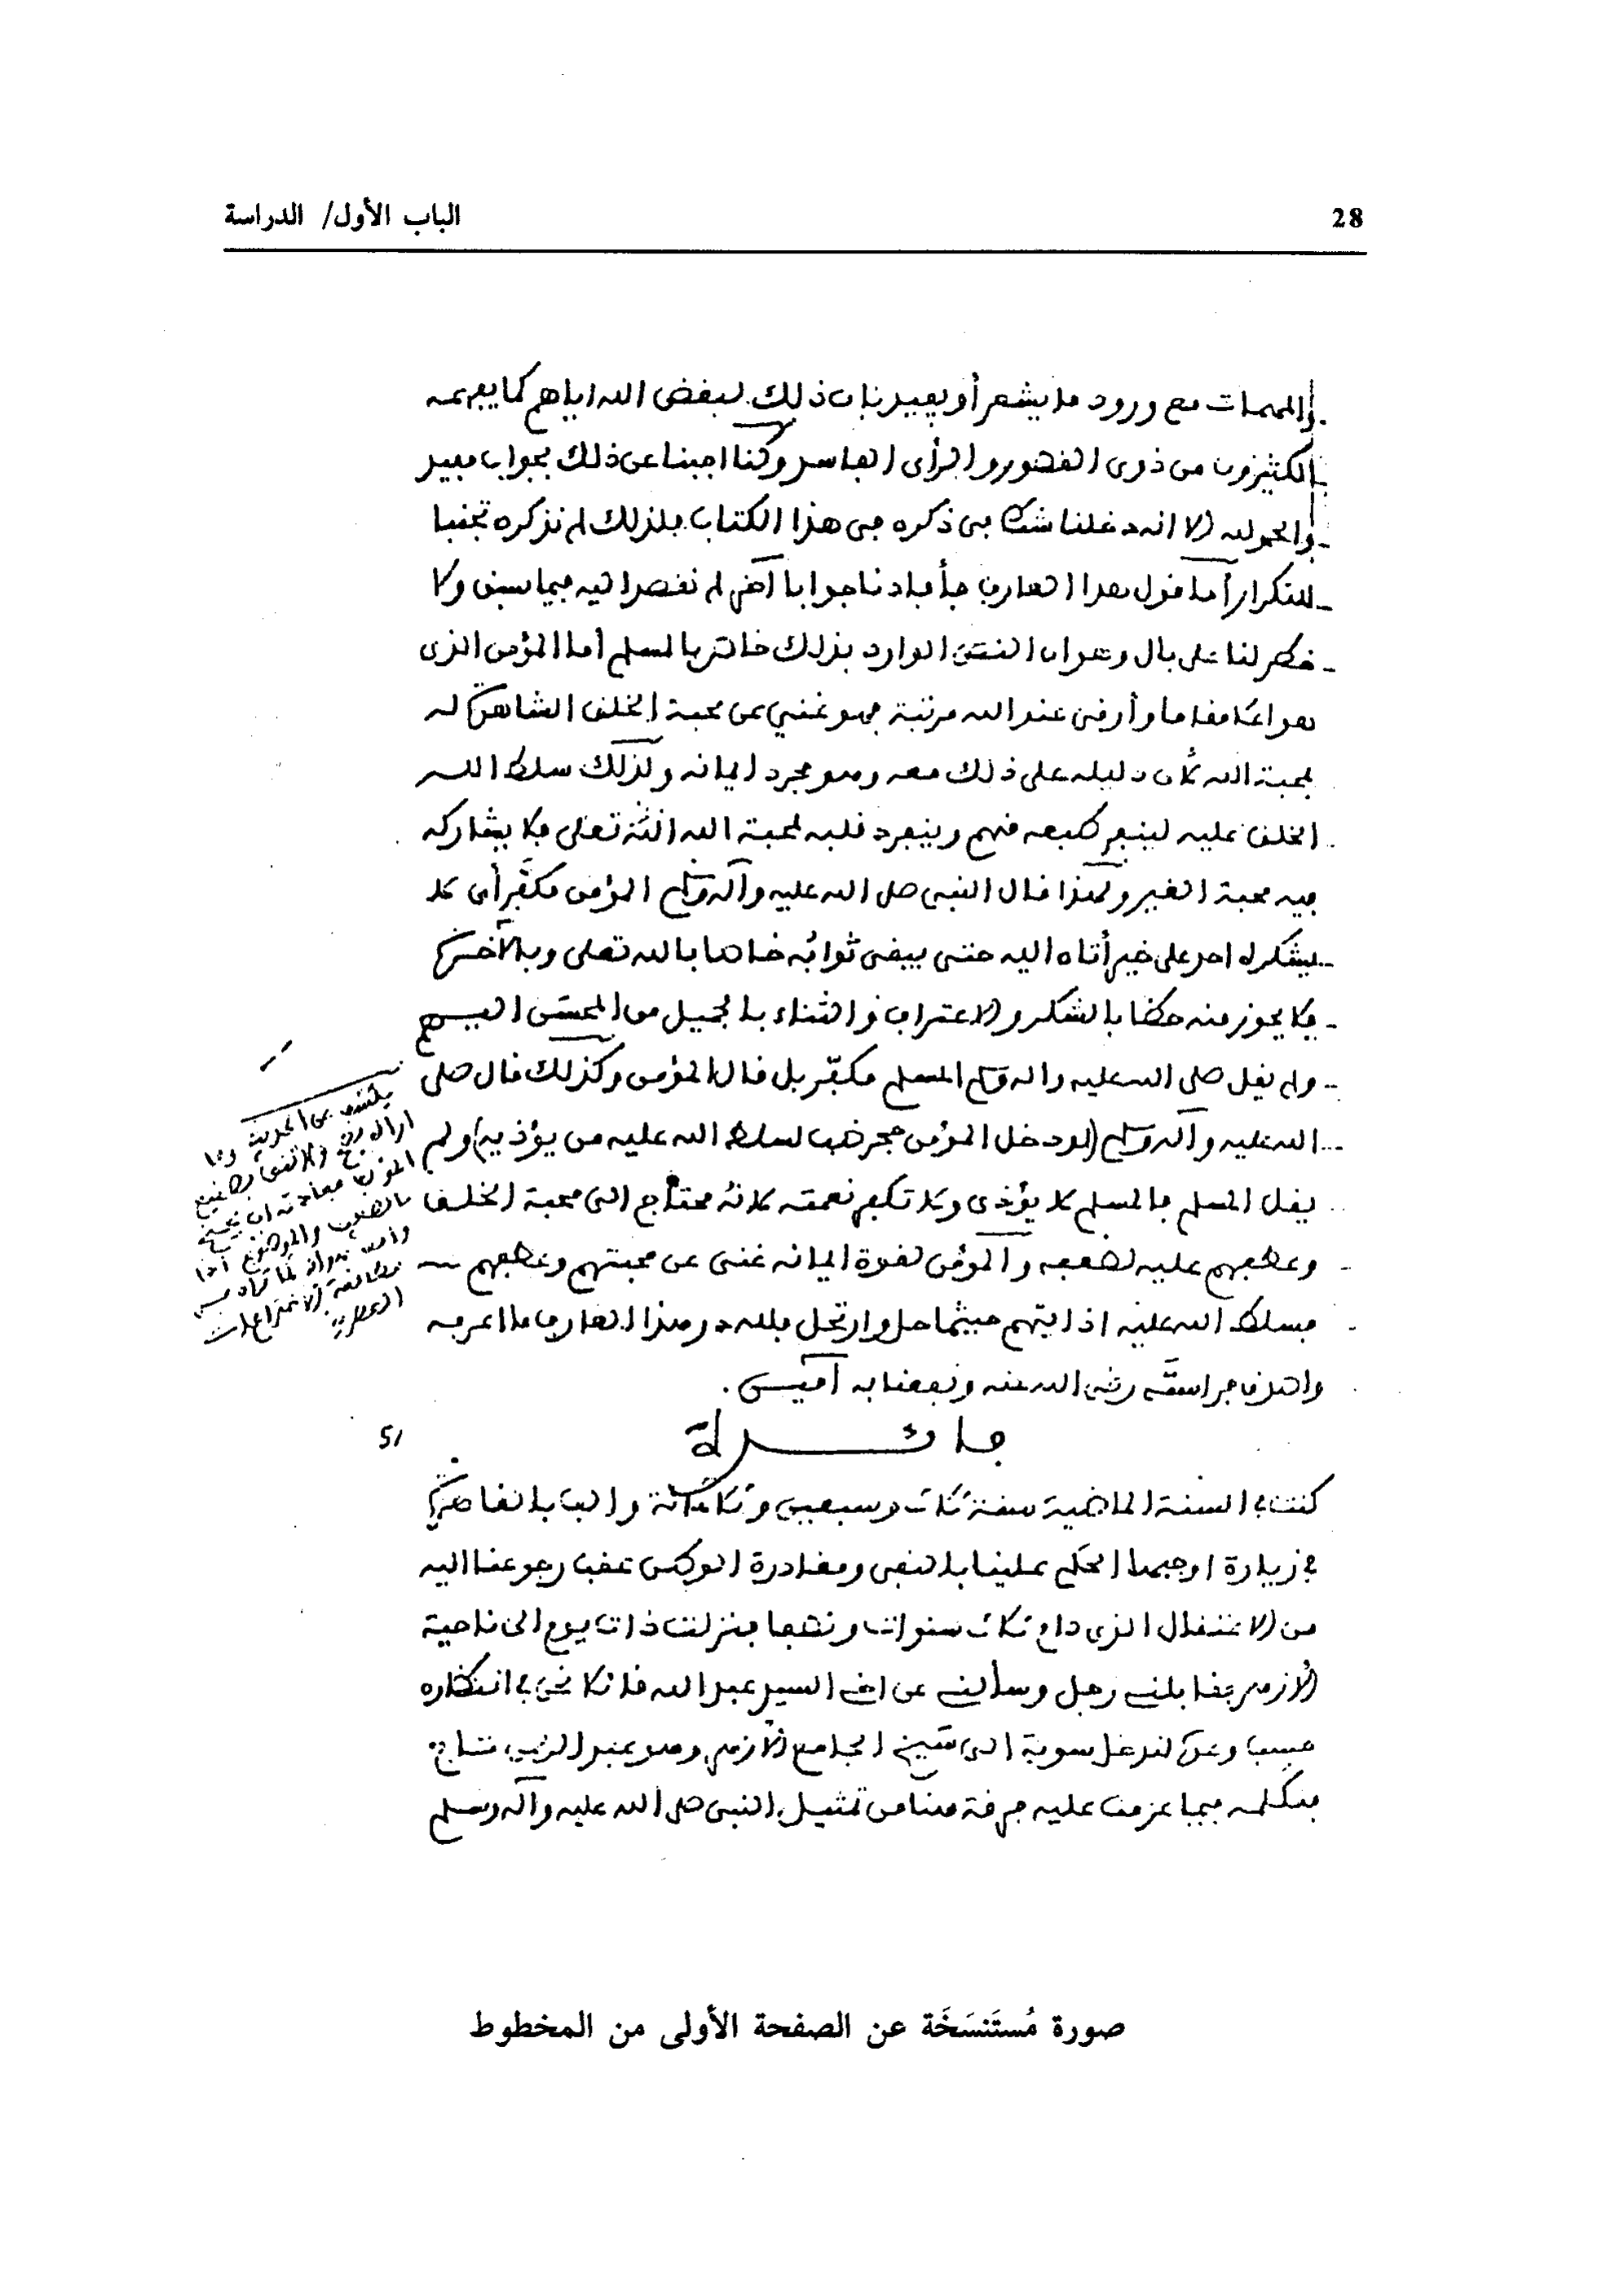 28
الباب الأول/ الدراسة
والمهمات مع ورود ما يشعر أو يفيد بأن ذلك لبغض الله إياهم كما يفهمه
الكثيرون من ذوي القصور والرأي الفاسد وكنا أجبنا عن ذلك بجواب مفيد
والحمد لله إلا أنه دخلنا شك في ذكره في هذا الكتاب فلذلك لم نذكره تجنبا
للتكرار أما قول هذا العارف فأفادنا جوابا آخر لم نقصد إليه فيما سبق ولا
خطر لنا على بال وهو أن الوارد بذلك خاص بالمسلم أما المؤمن الذي
هو أعلا مقاما وأرقى عند الله مرتبة فهو غني عن محبة الخلق الشاهدة له
بمحبة الله لأن دليله على ذلك معه وهو مجرد إيمانه ولذلك سلط الله
الخلق عليه لينفر طبعه منهم وينفرد قلبه لمحبة الله تعلى فلا يشاركه
فيه محبة الغير ولهذا قال النبي صلى الله عليه وآله وسلم المؤمن مكفَّر أي لا
يشكره احد على خير أتاه اليه حتى يبقى ثوابُه خاصا بالله تعلى وبالآخرة
فلا يجوز منه حظا بالشكر والاعتراف والثناء بالجميل من المحسَن اليهم
ولم يقل صلى الله عليه وآله وسلم المسلم مكفّر بل قال المؤمن وكذلك قال صلى
الله عليه وآله وسلم (لو دخل المؤمن جحر ضب لسلط الله عليه من يؤذيه) ولم
يقل المسلم فالمسلم لا يؤذى ولا تكفر نعمته لأنه محتاج الى محبة الخلق
وعطفهم عليه لضعفه والمؤمن لقوة ايمانه غنى عن محبتهم وعطفهم
فسلط الله عليه اذايتهم حيثما حل وارتحل فلله در هذا العارف ما اعرفه
واصدق فراسته رضي الله عنه ونفعنا به آمين.
51
فائدة
كنت في السنة الماضية سنة ثلاث وسبعين وثلاثمائة والف بالقاهرة
في زيارة اوجبها الحكم علينا بالنفى ومغادرة الوطن عقب رجوعنا اليه
من الاعتقال الذي دام ثلاث سنوات ونصفا فنزلت ذات يوم الى ناحية
الأزهر فقابلني رجل وسألني عن اخي السيد عبد الله قائلا نحن في انتظاره
هنا وعن لندخل سوية الى شيخ الجامع الأزهر وهو عبد الرحمن تاج
فنكلمه فيما عزمت عليه فرقة هنا من تمثيل النبي صلى الله عليه وآله وسلم
صورة مُستَنسَخَة عن الصفحة الأولى من المخطوط